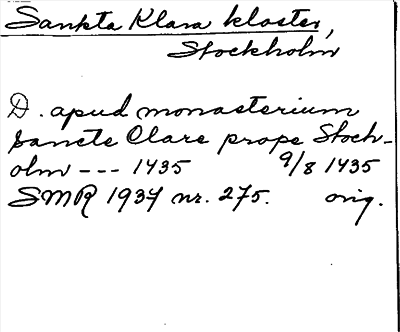 Sankta Klara kloster,
Stockholm
D. apud monasterium
sancte Clare prope Stock-
olm --- 1435 9/8 1435
SMR 1937 nr. 275. orig.